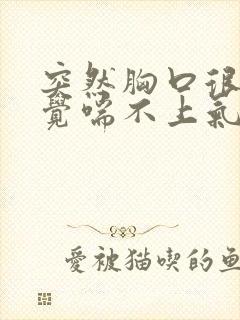 突然胸口很
覺喘不上氣
愛被猫喫的鱼